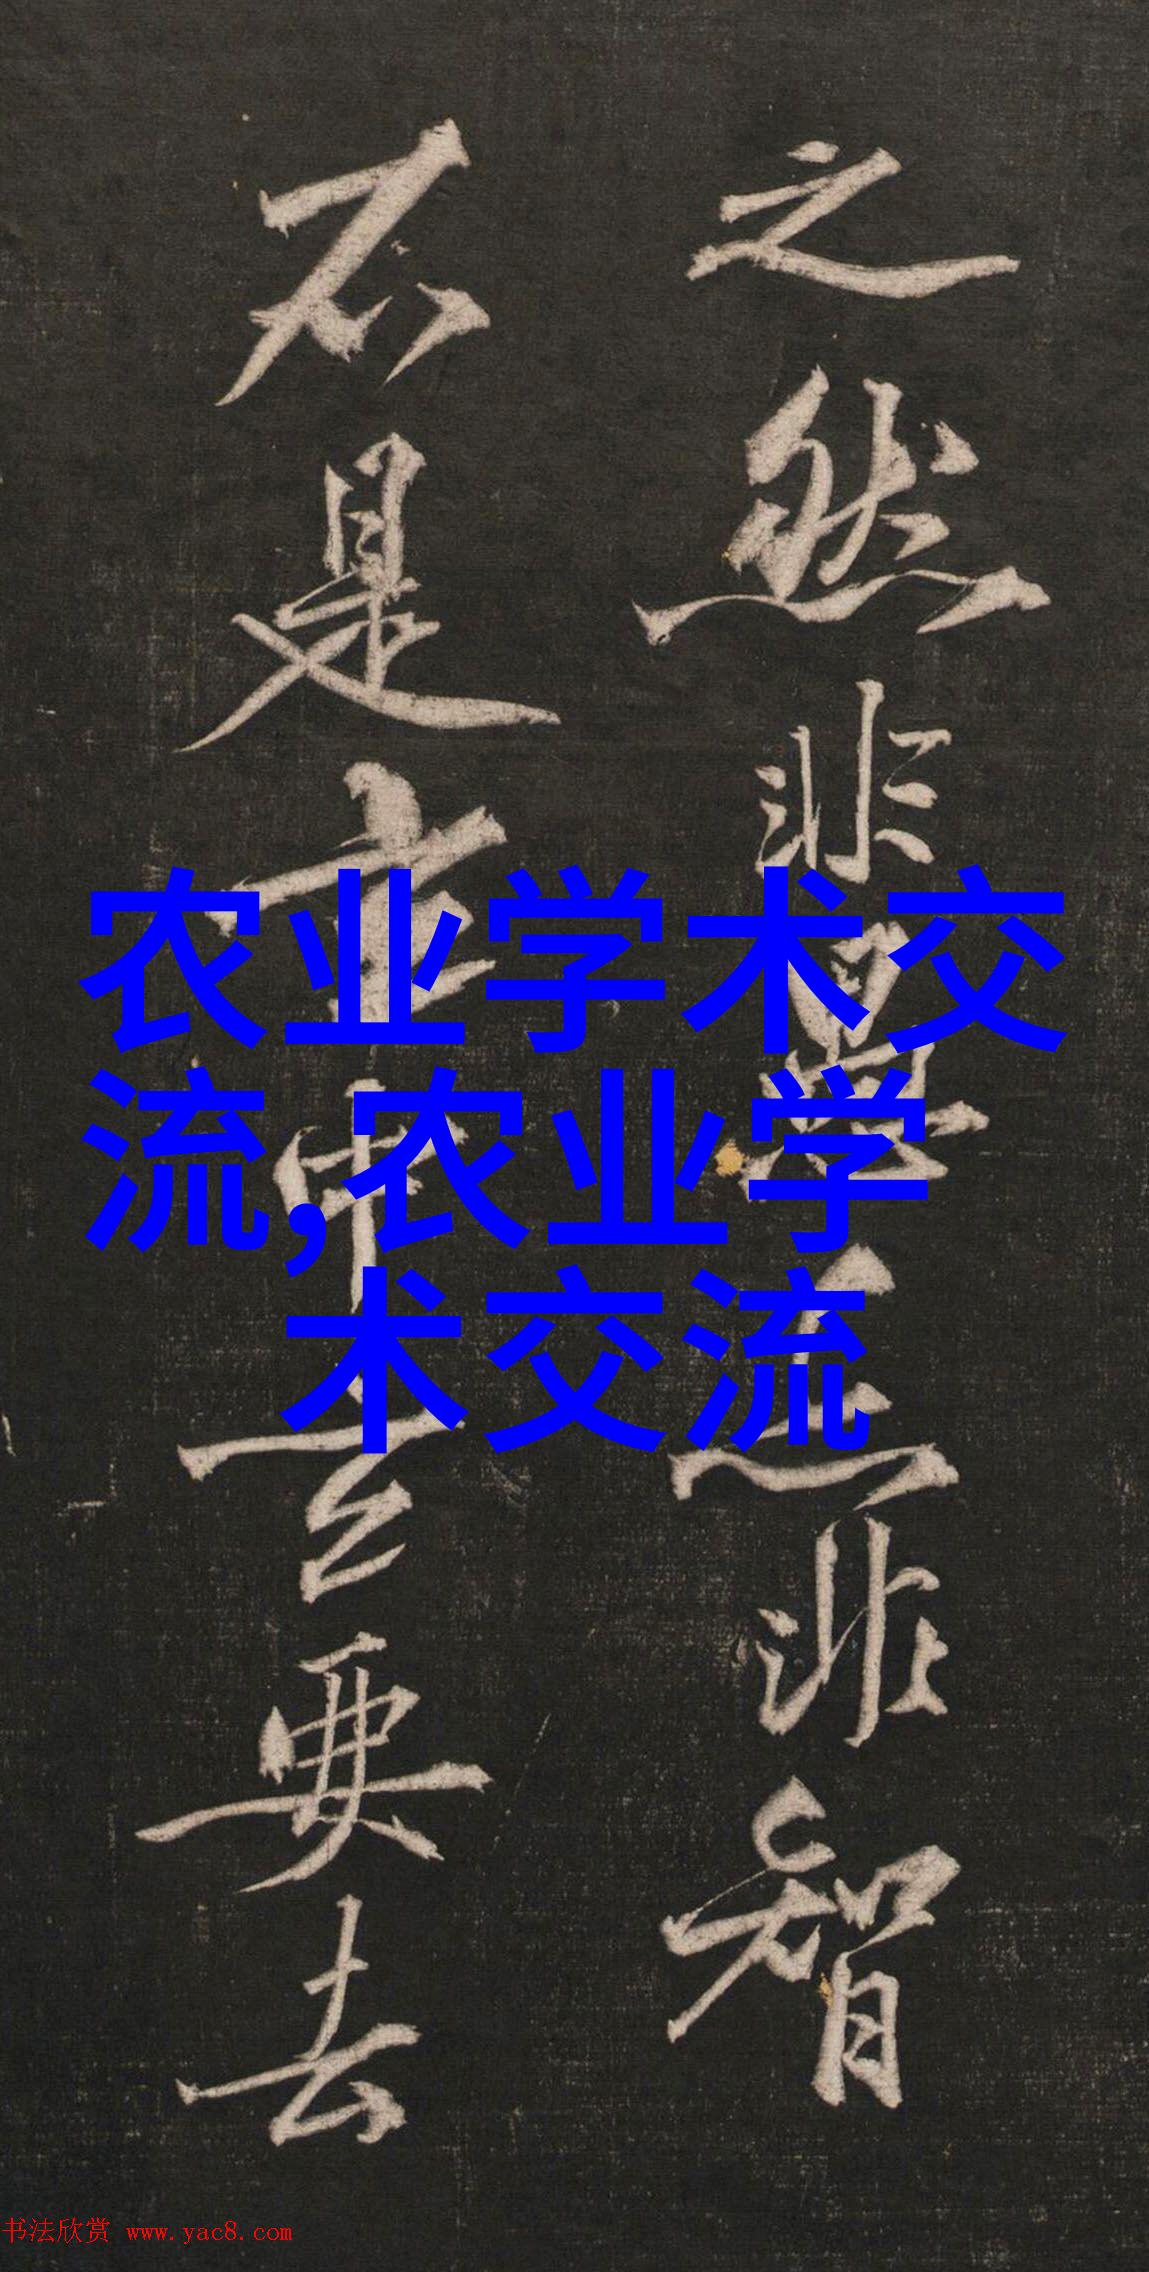 之然非上非智
不是中云要去
农业学术交
流,农业学
术交流
书法欣赏 www.yac8.com